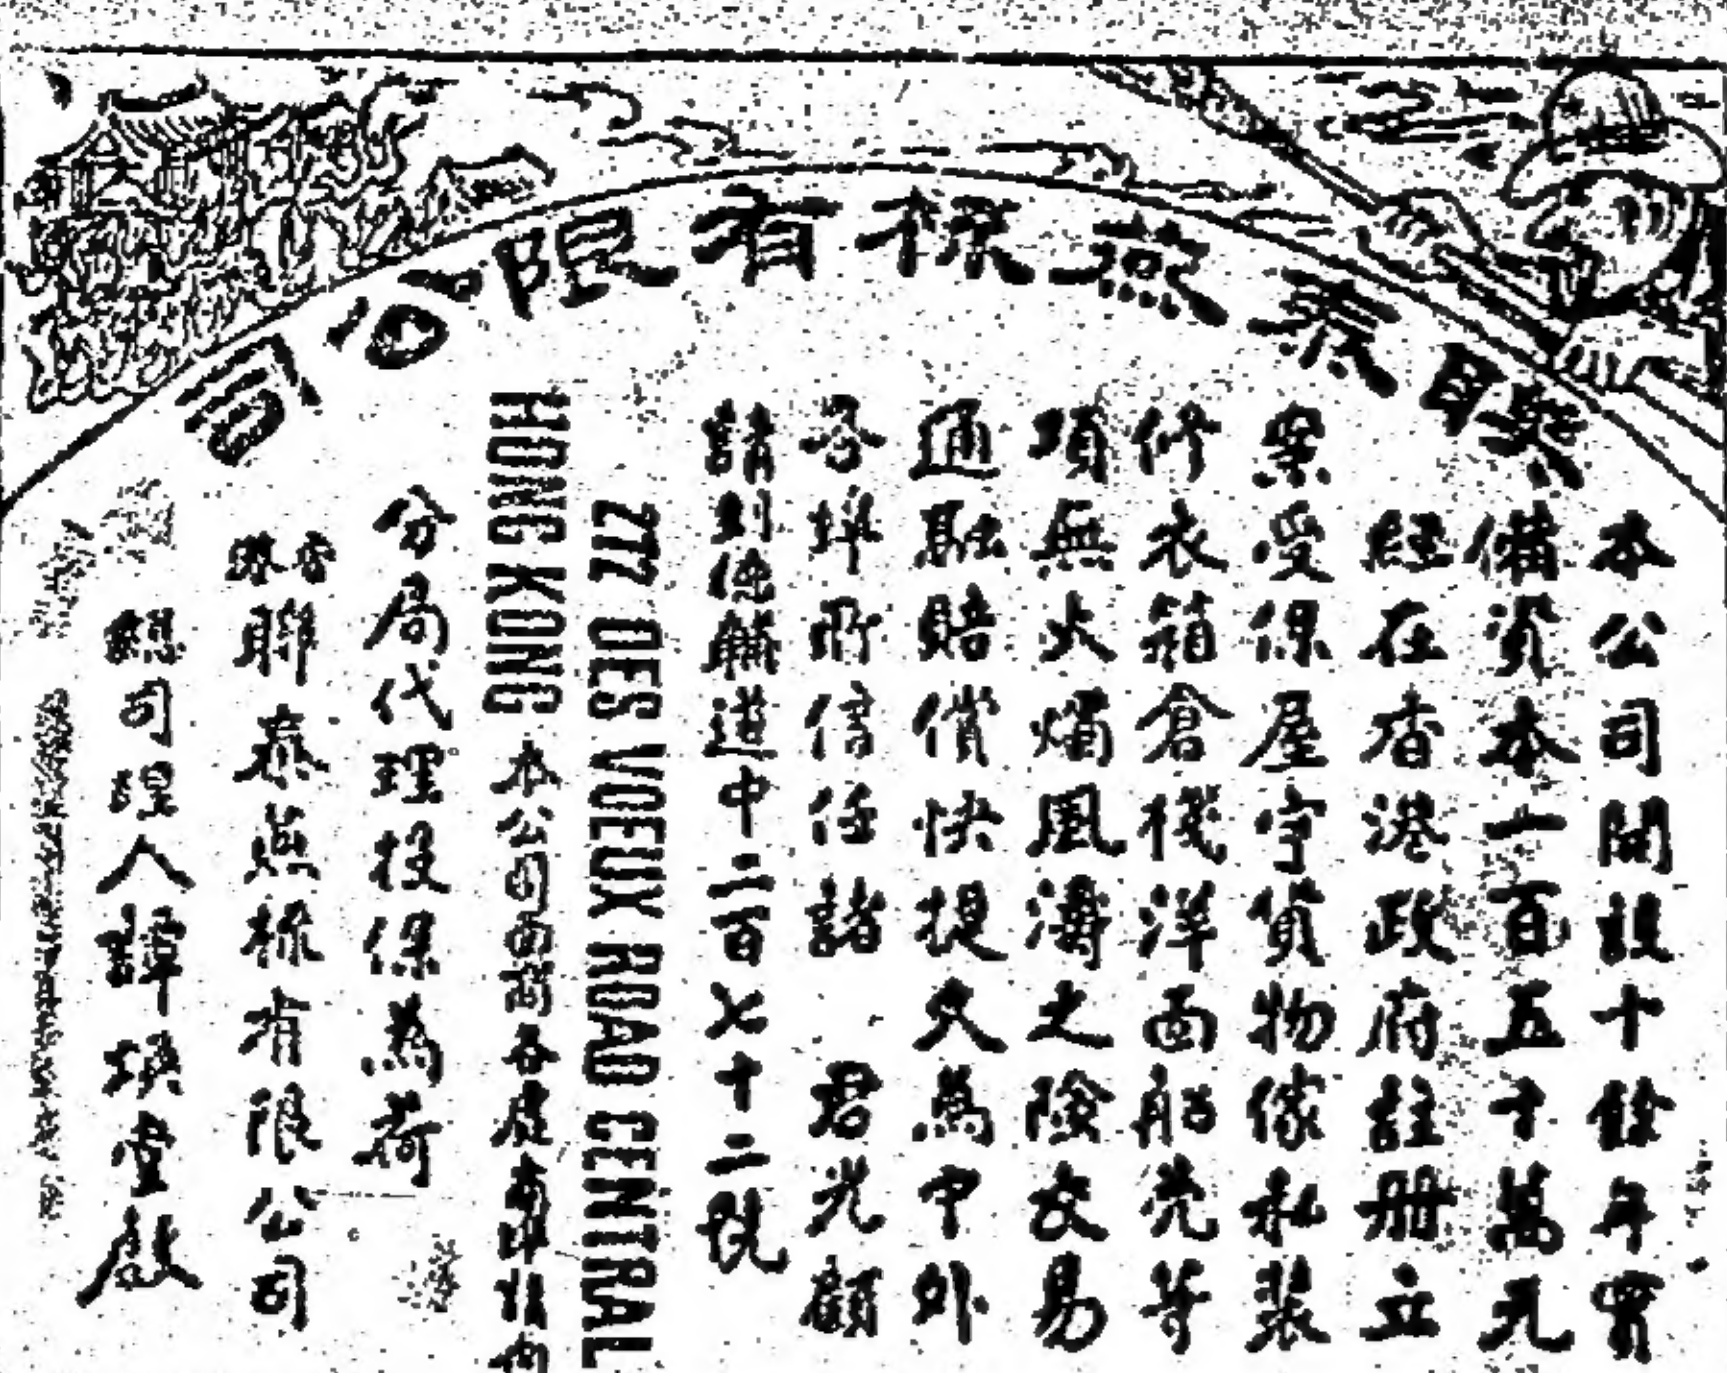 聯泰燕梳有限公司
本公司開設十餘年實
備資本一百五十萬元
經在香港政府註册立
案受保屋宇貨物傢私裝
修衣箱倉機洋面船壳等
項無火燭風濤之險交易
通融賠償快捷久為中外
各埠所信任諸 君光顧
請到德輔道中二百七十二號
277 DES VOEUX ROAD CENTRAL
HONG KONG 本公司
分局代理投保為荷
香港聯泰燕梳有限公司
總司理人譚煥堂啟